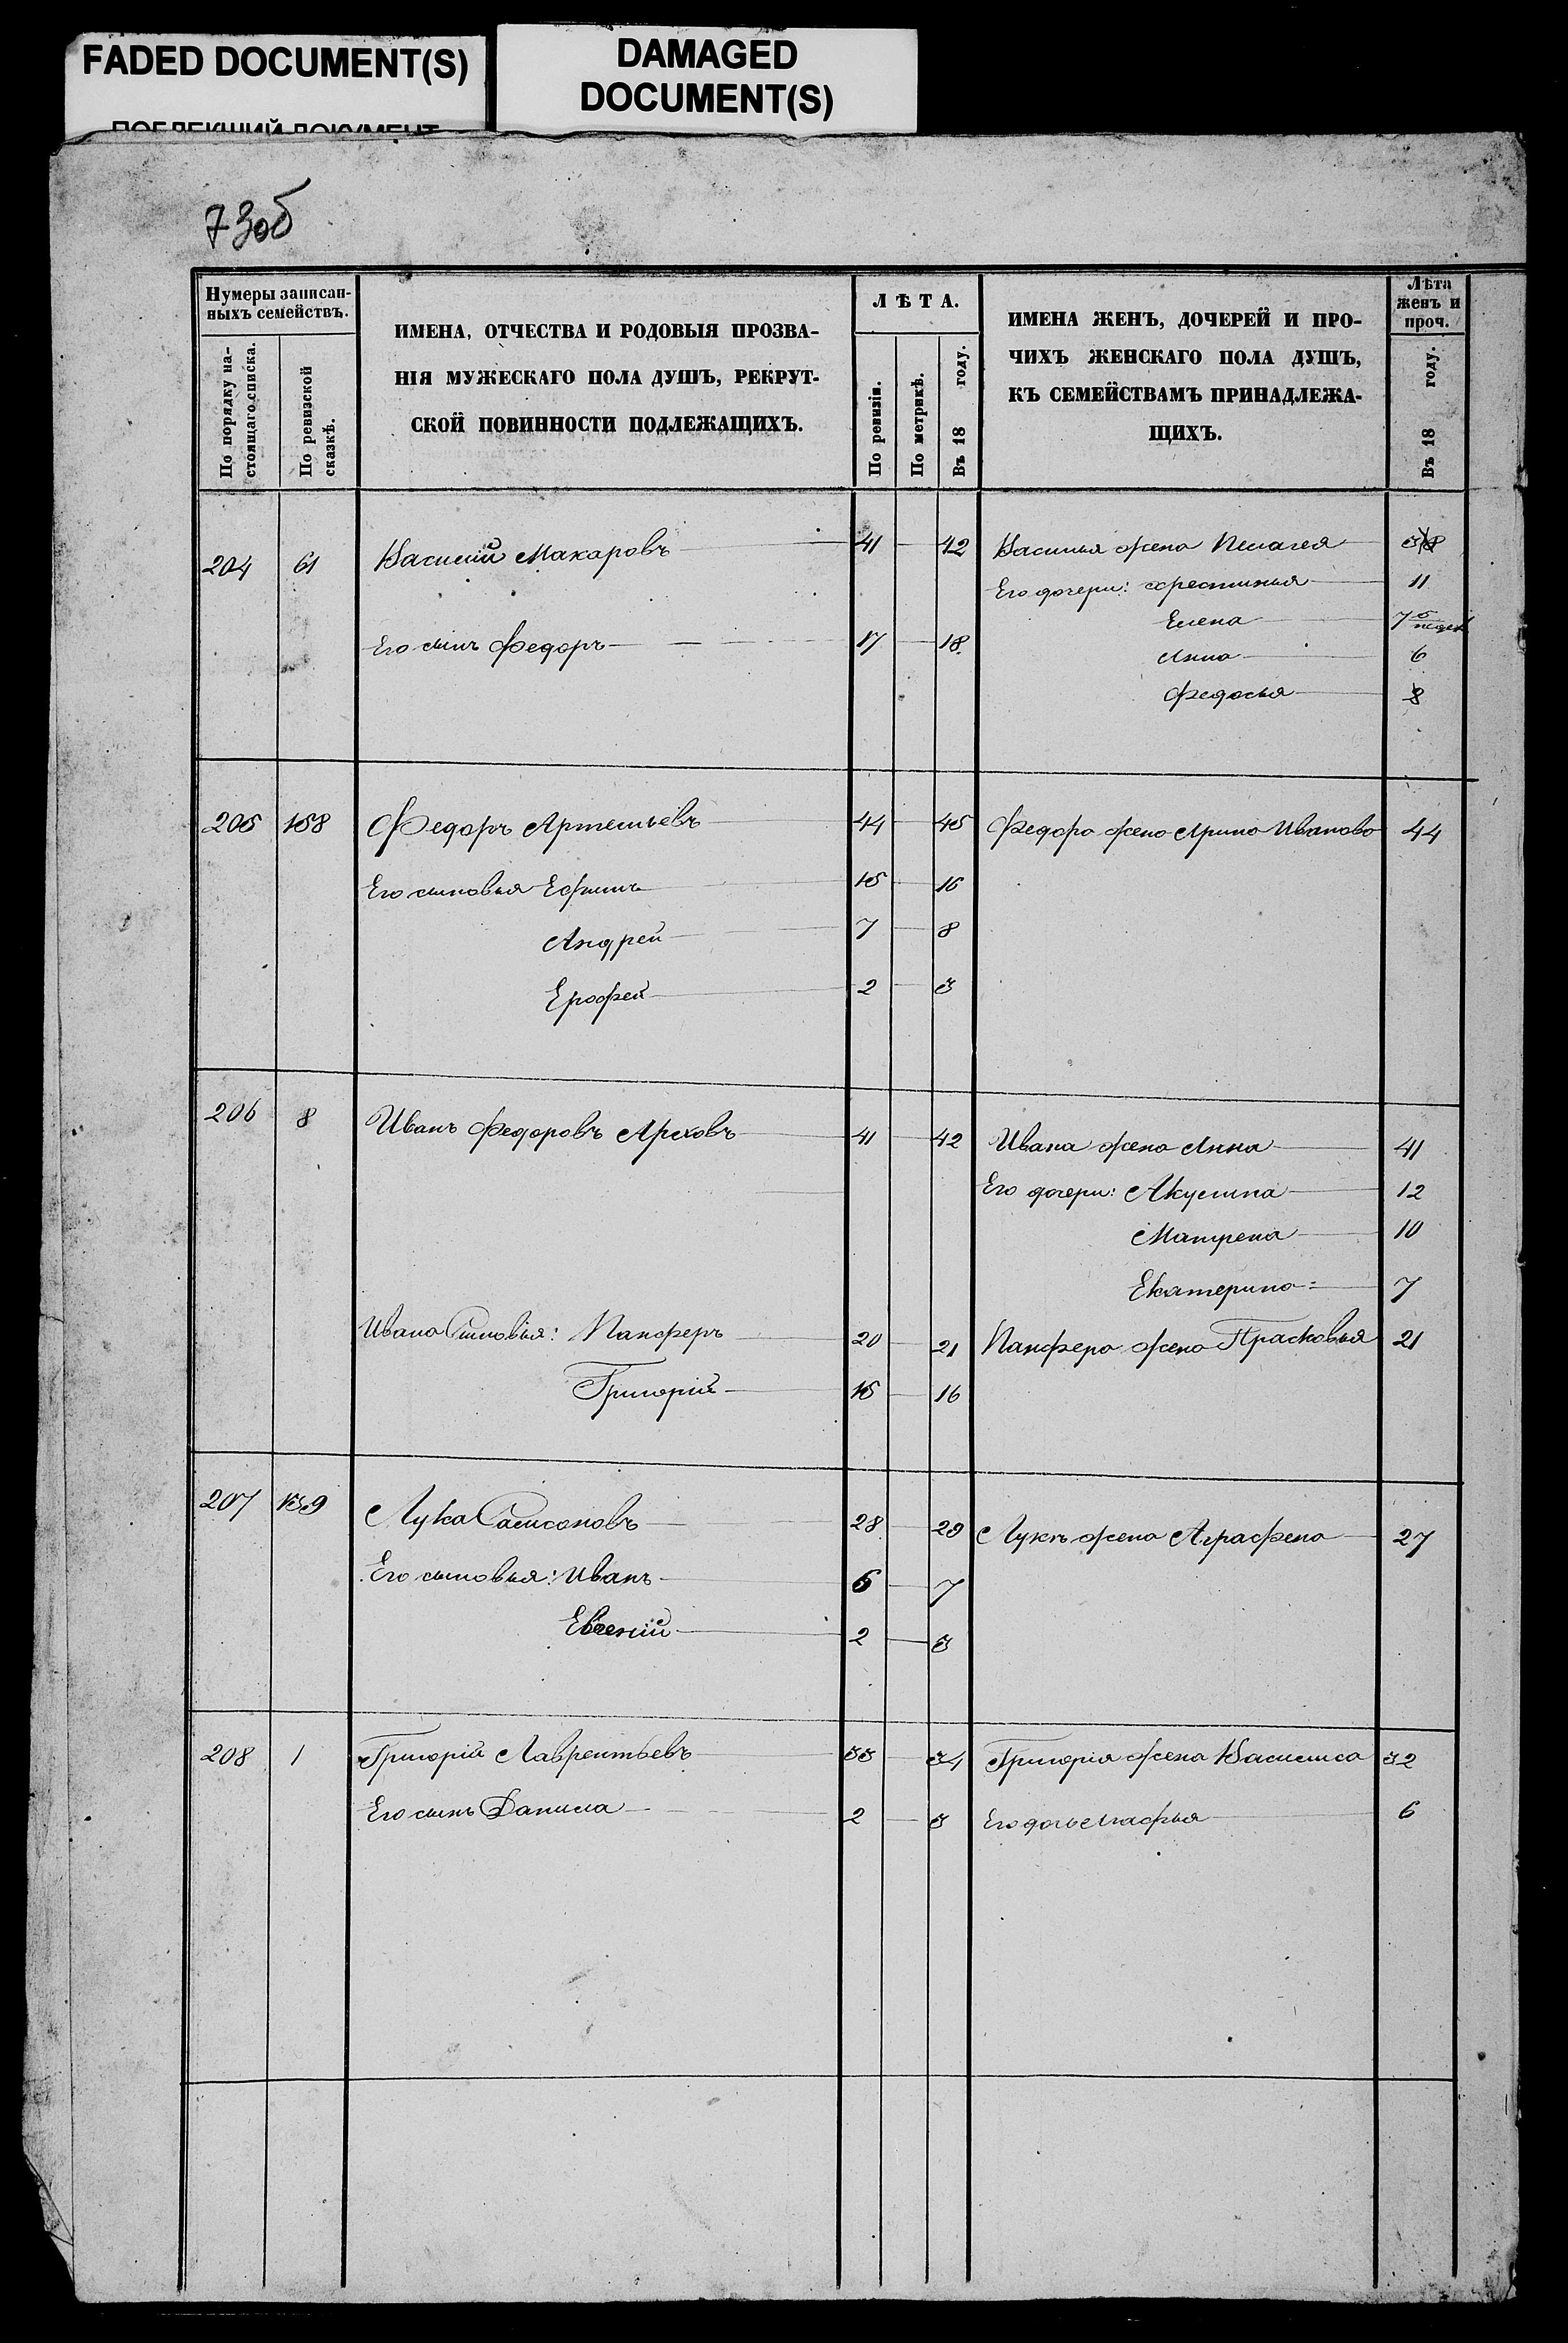 FADED DOCUMENT(S)
DAMAGED
DOCUMENT(S)
ПОБЛЕКШИЙ ДОКУМЕНТ
73об
Нумеры записан-
ныхъ семействъ.
По порядку на-
стоящаго списка.
По ревизской
сказкѣ.
ИМЕНА, ОТЧЕСТВА И РОДОВЫЯ ПРОЗВА-
НІЯ МУЖЕСКАГО ПОЛА ДУШЪ, РЕКРУТ-
СКОЙ ПОВИННОСТИ ПОДЛЕЖАЩИХЪ.
ЛѢТА.
По ревизіи.
По метрикѣ.
Въ 18 году.
ИМЕНА ЖЕНЪ, ДОЧЕРЕЙ И ПРО-
ЧИХЪ ЖЕНСКАГО ПОЛА ДУШЪ,
КЪ СЕМЕЙСТВАМЪ ПРИНАДЛЕЖА-
ЩИХЪ.
Лѣта
женъ и
проч.
Въ 18 году.
204 61 Василий Макаровъ 41 42 Василья жена Пелагея
Его дочери: Хрестинья 11
Елена 7
Его сынъ Федоръ 17 18
Анна 6
Федосья 8
205 158 Федоръ Артемьевъ 44 45 Федора жена Арина Иванова 44
Его сыновья Ефимъ 15 16
Андрей 7 8
Ерофей 2 3
206 8 Иванъ Федоровъ Ареховъ 41 42 Ивана жена Анна 41
Его дочери: Акулина 12
Матрена 10
Екатерина 7
Ивана Сыновья: Панферъ 20 21 Панфера жена Прасковья 21
Григорій 15 16
207 159 Лука Самсоновъ 28 29 Луки жена Аграфена 27
Его сыновья: Иванъ 6 7
Евгений 2 3
208 1 Григорій Лаврентьевъ 33 34 Григорія жена Василиса 32
Его сынъ Данила 2 3 Его дочь Марфья 6